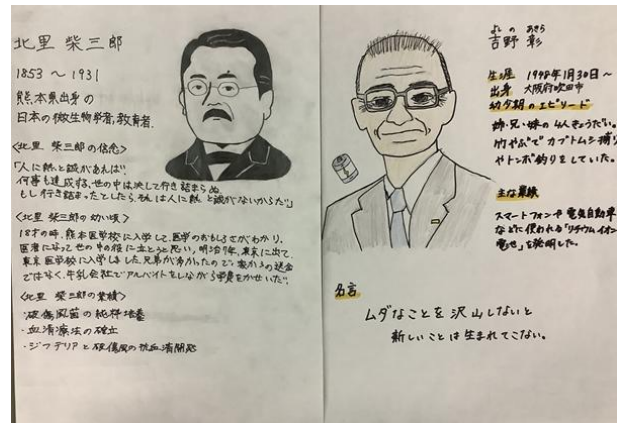 北里 柴三郎
1853 〜 1931
熊本県出身の
日本の微生物学者,教育者.
〈北里 柴三郎の信念〉
「人に熱と誠があれば
何事も達成する,世の中は決して行き詰まらぬ
もし行き詰まったとしたら,それは人に熱と誠がないからだ」
〈北里 柴三郎の幼い頃〉
18才の時,熊本医学校に入学して,医学のおもしろさがわかり,
医者になって世の中の役に立とうと思い,明治7年,東京に出て,
東京医学校に入学しました.兄弟が多かったので,家からの送金
ではなく,牛乳会社でアルバイトをしながら学費をかせいだ.
〈北里 柴三郎の業績〉
・破傷風菌の純粋培養
・血清療法の確立
・ジフテリアと破傷風の抗血清開発
よし の あきら
吉野 彰
生涯 1948年1月30日〜
出身 大阪府吹田市
幼少期のエピソード
姉・兄・妹の4人きょうだい。
竹やぶでカブトムシ捕り
やトンボ釣りをしていた。
主な業績
スマートフォンや電気自動車
などに使われる「リチウムイオン
電池」を発明した。
名言
ムダなことを沢山しないと
新しいことは生まれてこない。